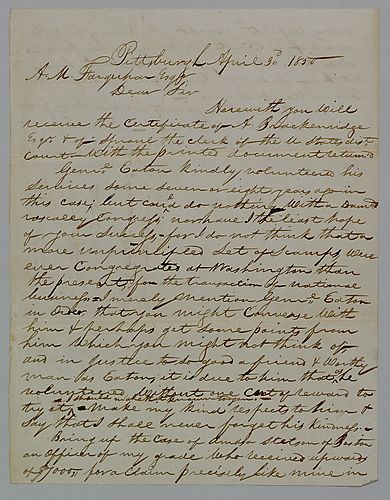 Pittsburgh April 3d 1850
A. M. Farquhar Esqr
Dear Sir
Herewith you will
receive the Certificate of A Brackenridge
Esqr & of Sproul the clerk of the U States dist.
Court – With the printed document returned
Genrl Eaton kindly volunteered his
services some seven or eight years ago in
this case; but could do nothing with a Damd
rascally Congress; nor have I the least hope
of your success – for I do not think that a
more unprincipled set of scamps were
ever Congregated at Washington than
the present, for the transaction of national
business = I merely mention Genrl Eaton
in order that you might converse with
him & perhaps get some points from
him which you might not think of
and in justice to so good a friend & worthy
man as Eaton, it is due to him that he
volunteered without one cent of reward to
try it = Make my kind respects to him &
say that I shall never forget his kindness. –
Bring up the case of Amasa Stetson of Boston
an officer of my grade who received upward
of $7000, for a Claim precisely like mine in